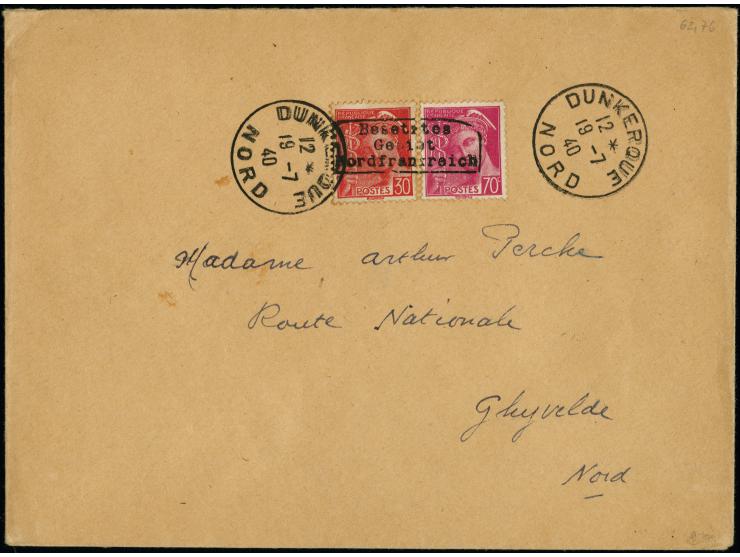 62,76
DUNKERQUE
12 *
19 -7
40
NORD
REPUBLIQUE
FRANÇAISE
POSTES 30
REPUBLIQUE
FRANÇAISE
POSTES 70c
Besetztes
Gebiet
Nordfrankreich
DUNKERQUE
12 *
19 -7
40
NORD
Madame Arthur Perche
Route Nationale
Ghyvelde
Nord